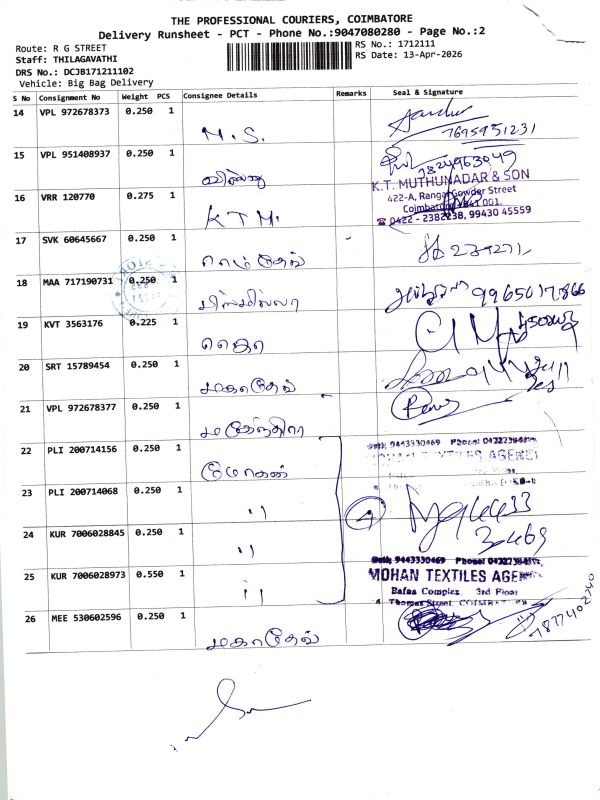 THE PROFESSIONAL COURIERS, COIMBATORE
Delivery Runsheet - PCT - Phone No.:9047080280 - Page No.:2
Route: R G STREET
RS No.: 1712111
Staff: THILAGAVATHI
RS Date: 13-Apr-2026
DRS No.: DCJB171211102
Vehicle: Big Bag Delivery
S No Consignment No Weight PCS Consignee Details Remarks Seal & Signature
14 VPL 972678373 0.250 1 M.S.
7695951231
15 VPL 951408937 0.250 1
7824963049
16 VRR 120770 0.275 1 K T M.
K.T. MUTHUNADAR & SON
422-A, Rangai Gowder Street
Coimbatore 641 001.
☎ 0422 - 2382238, 99430 45559
17 SVK 60645667 0.250 1
18 MAA 717190731 0.250 1 பிஸ்மில்லா 9965017866
19 KVT 3563176 0.225 1
20 SRT 15789454 0.250 1 மகாதேவ்
21 VPL 972678377 0.250 1 மகேந்திரா
22 PLI 200714156 0.250 1 மோகன்
9443330469
MOHAN TEXTILES AGENCI
23 PLI 200714068 0.250 1 "
4
94433
30469
24 KUR 7006028845 0.250 1 "
25 KUR 7006028973 0.550 1 "
9443330469
MOHAN TEXTILES AGEN
Bafna Complex, 3rd Floor
Thomas Street,
26 MEE 530602596 0.250 1 மகாதேவ்
7877402740